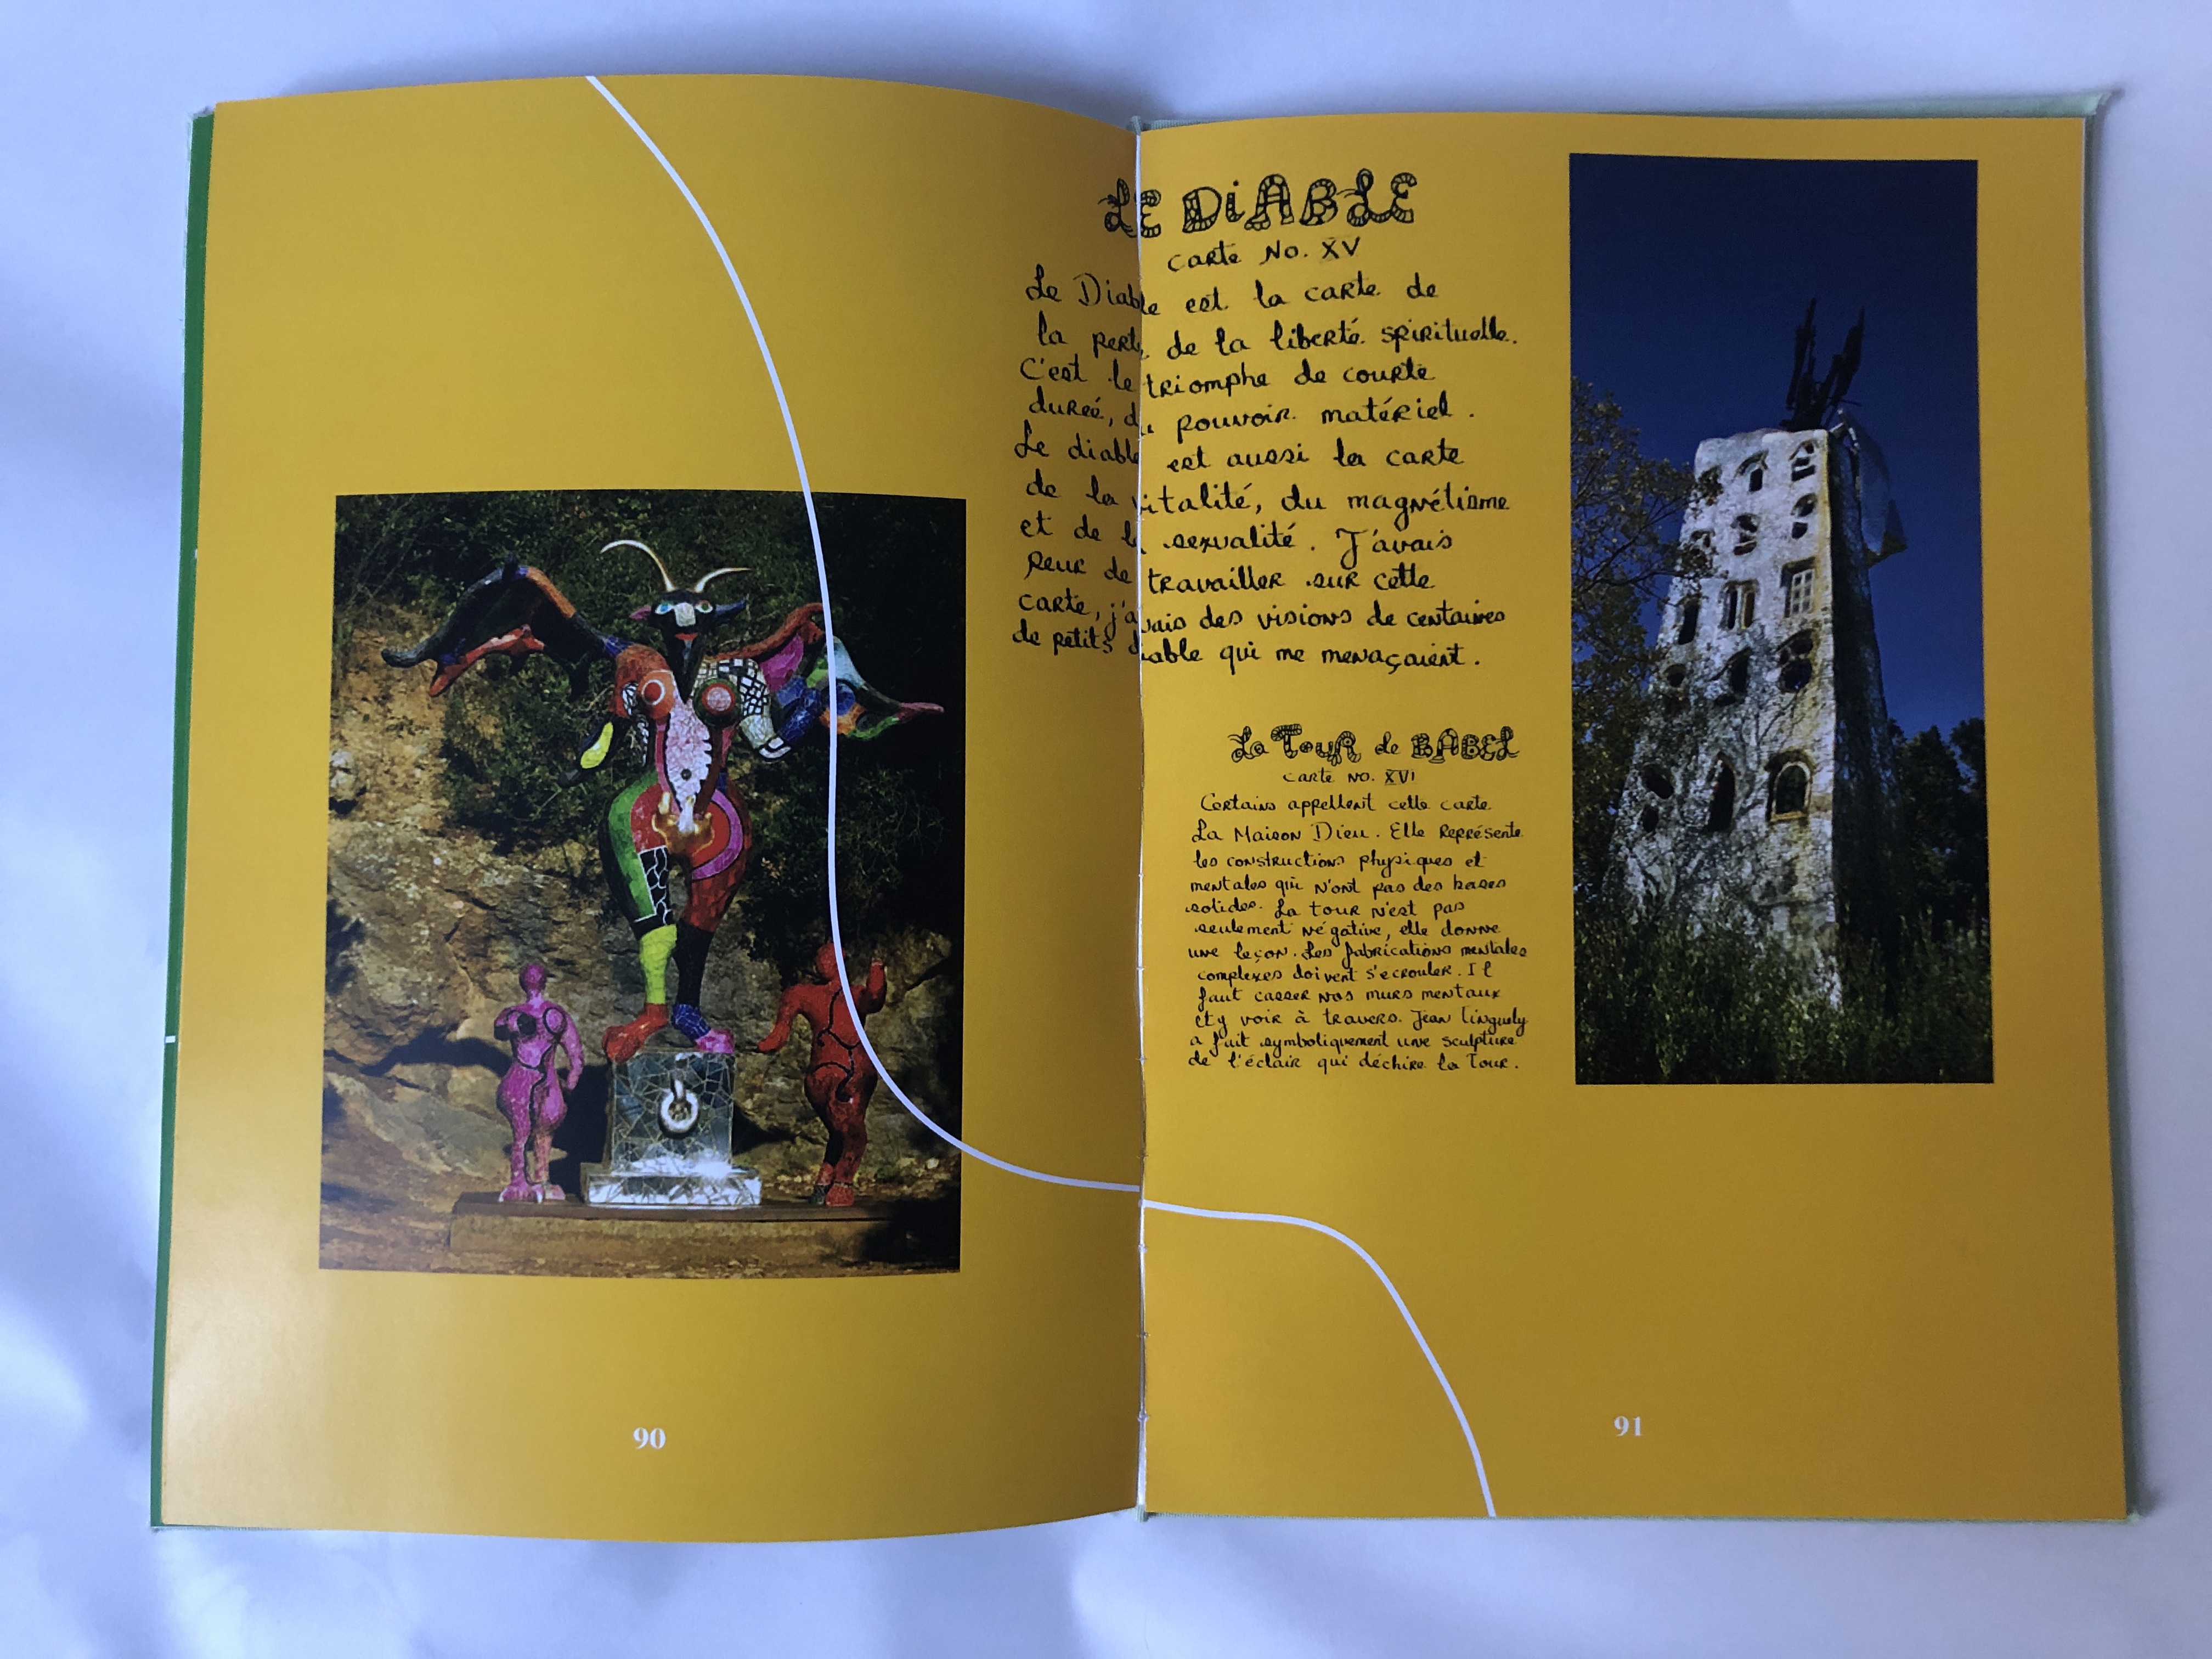 LE DiABLE
Carte No. XV
Le Diable est la carte de
la perte de la liberté spirituelle.
C'est le triomphe de courte
dureé, du pouvoir matériel.
Le diable est aussi la carte
de la vitalité, du magnétisme
et de la sexualité. J'avais
peur de travailler sur cette
carte, j'avais des visions de centaines
de petits diable qui me menaçaient.
La Tour de BABEL
Carte No. XVI
Certains appellent cette carte
La Maison Dieu. Elle Représente
les constructions physiques et
mentales qui n'ont pas des bases
solides. La tour n'est pas
seulement négative, elle donne
une leçon. Les fabrications mentales
complexes doivent s'ecrouler. Il
faut casser nos murs mentaux
et y voir à travers. Jean Tinguely
a fait symboliquement une sculpture
de l'éclair qui déchire la Tour.
90
91